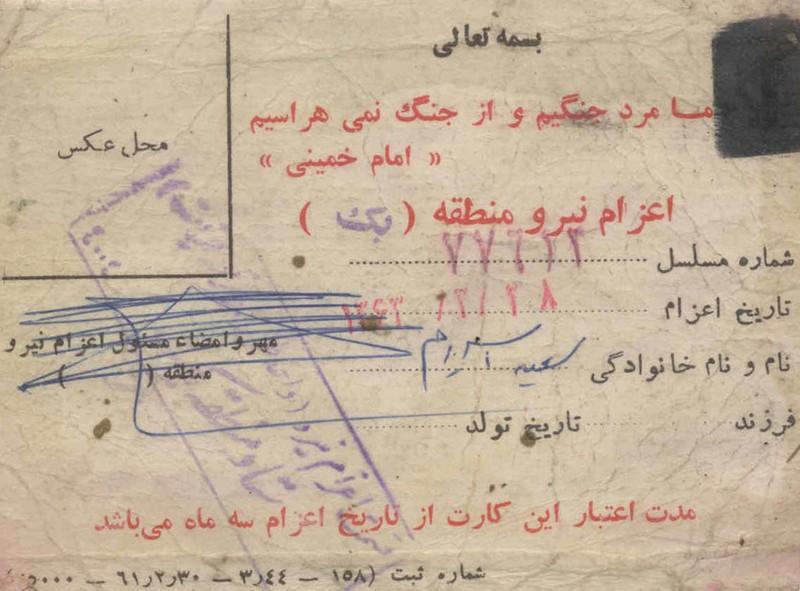 بسمه تعالی
ما مرد جنگیم و از جنگ نمی هراسیم
« امام خمینی »
محل عکس
اعزام نیرو منطقه ( یک )
شماره مسلسل ۷۷۶۱۲
تاریخ اعزام ۱۳۶۳/۲/۲۸
نام و نام خانوادگی سعید
مهر و امضاء مسئول اعزام نیرو
منطقه ( )
فرزند تاریخ تولد
مدت اعتبار این کارت از تاریخ اعزام سه ماه می‌باشد
شماره ثبت (۱۵۸ – ۳٫۴۴ – ۶۱٫۲٫۳۰ –